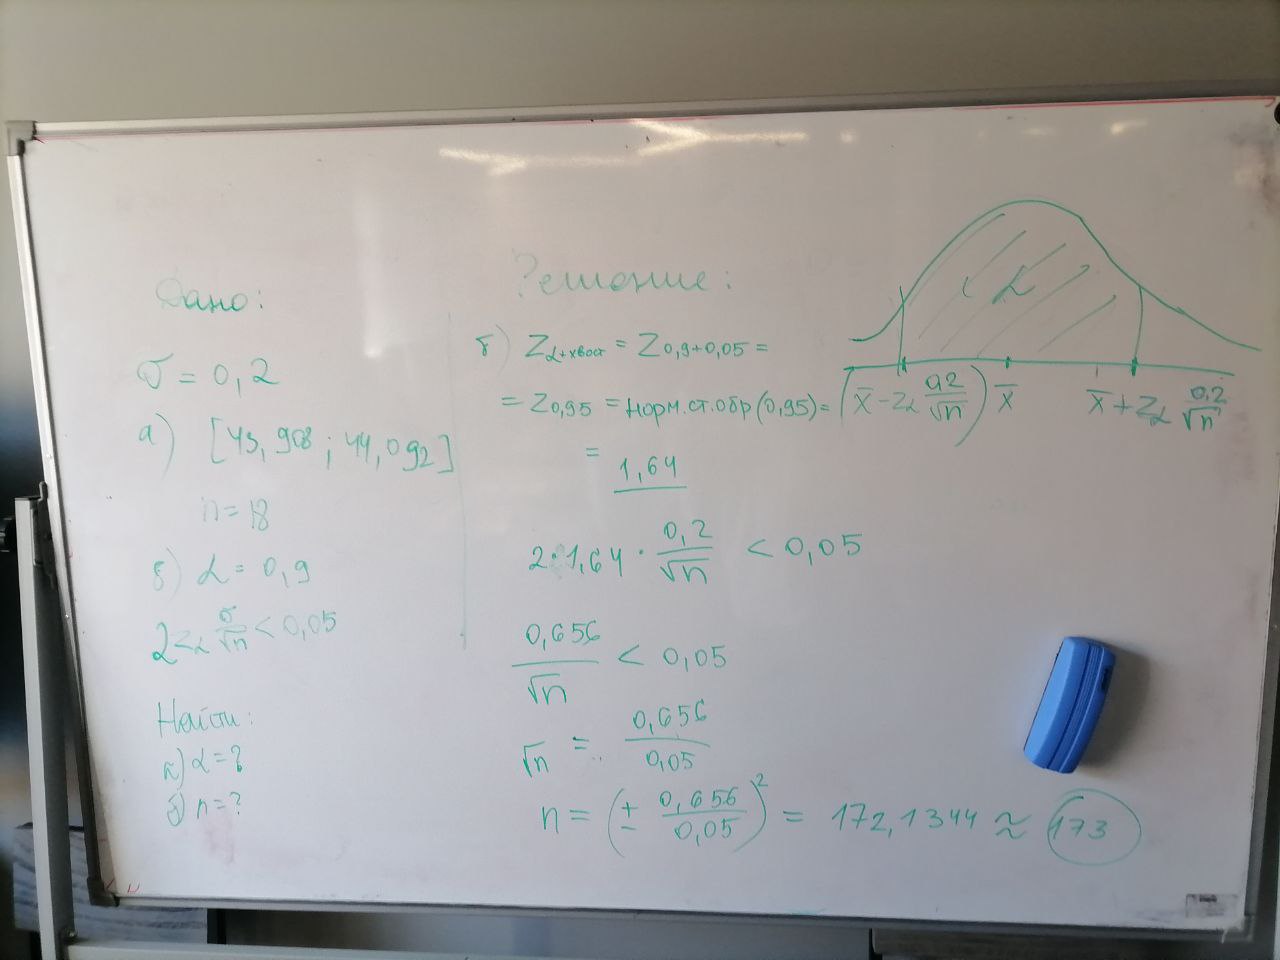 Дано:
σ = 0,2
а) [43,908 ; 44,092]
n = 18
б) α = 0,9
2 z_α σ/√n < 0,05
Найти:
а) α = ?
б) n = ?
Решение:
б) Z_α+хвост = Z_0,9+0,05 =
= Z_0,95 = норм.ст.обр(0,95) =
= 1,64
2 · 1,64 · 0,2/√n < 0,05
0,656/√n < 0,05
√n = 0,656/0,05
n = (± 0,656/0,05)² = 172,1344 ≈ 173
α
(x̄ - z_α 0,2/√n) x̄ x̄ + z_α 0,2/√n